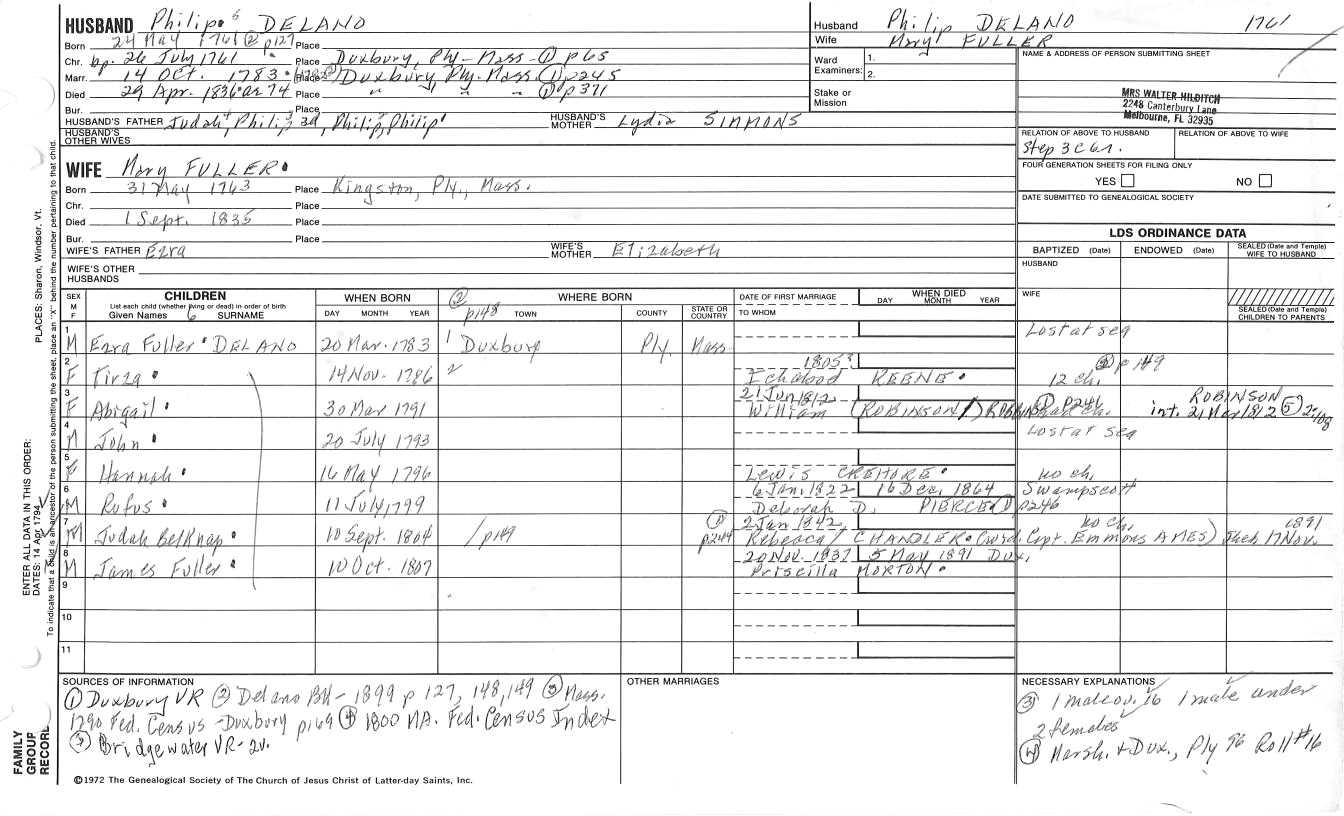 HUSBAND Philip 6 DELANO
Born 24 May 1761 ② p127 Place
Chr. bp. 26 July 1761 Place Duxbury, Ply - Mass - ① p65
Marr. 14 Oct. 1783 Place Duxbury, Ply. Mass. ① p245
Died 29 Apr. 1836 ae 74 Place " " " ① p371
Bur. Place
HUSBAND'S FATHER Judah 4, Philip 3d, Philip 2, Philip 1 HUSBAND'S MOTHER Lydia SIMMONS
HUSBAND'S OTHER WIVES
Husband Philip DELANO 1761
Wife Mary FULLER
Ward Examiners: 1.
2.
Stake or Mission
NAME & ADDRESS OF PERSON SUBMITTING SHEET
MRS WALTER HILDITCH
2248 Canterbury Lane
Melbourne, FL 32935
RELATION OF ABOVE TO HUSBAND RELATION OF ABOVE TO WIFE
Step 3C6r.
FOUR GENERATION SHEETS FOR FILING ONLY
YES NO
DATE SUBMITTED TO GENEALOGICAL SOCIETY
WIFE Mary FULLER
Born 31 May 1763 Place Kingston, Ply., Mass.
Chr. Place
Died 1 Sept. 1835 Place
Bur. Place
WIFE'S FATHER Ezra WIFE'S MOTHER Elizabeth
WIFE'S OTHER HUSBANDS
LDS ORDINANCE DATA
BAPTIZED (Date) ENDOWED (Date) SEALED (Date and Temple) WIFE TO HUSBAND
HUSBAND
WIFE
SEALED (Date and Temple) CHILDREN TO PARENTS
SEX M F CHILDREN List each child (whether living or dead) in order of birth Given Names 6 SURNAME WHEN BORN DAY MONTH YEAR ② p148 WHERE BORN TOWN COUNTY STATE OR COUNTRY DATE OF FIRST MARRIAGE TO WHOM WHEN DIED DAY MONTH YEAR
1 M Ezra Fuller DELANO 20 Mar. 1783 Duxbury Ply. Mass. Lost at sea
2 F Tirza 14 Nov. 1786 " 1805 ② p149
Ichabood KEENE 12 ch.
3 F Abigail 30 Mar 1791 21 Jun 1812 ① p246 ROBINSON
William (ROBINSON) int. 21 Mar 1812 ⑤
4 M John 20 July 1793 Lost at sea
5 F Hannah 16 May 1796 Lewis CREHORE no ch.
6 M Rufus 11 July 1799 6 Jan. 1822 16 Dec. 1864 Swampscott
Deborah D. PIERCE ① p246
7 M Judah Belknap 10 Sept. 1804 p149 ① p244 2 Jan 1842 no ch. 1891
Rebecca CHANDLER (wid. Capt. Emmons AMES) She d. 17 Nov.
8 M James Fuller 10 Oct. 1807 20 Nov. 1837 5 May 1891 Dux.
Priscilla MORTON
9
10
11
SOURCES OF INFORMATION
① Duxbury VR ② Delano BK - 1899 p 127, 148, 149 ③ Mass.
1790 Fed. Census - Duxbury p169 ④ 1800 MA. Fed. Census Index
⑤ Bridgewater VR - 2v.
OTHER MARRIAGES
NECESSARY EXPLANATIONS
③ 1 male ov. 16 1 male under
2 females
④ Marsh. & Dux., Ply 96 Roll #16
©1972 The Genealogical Society of The Church of Jesus Christ of Latter-day Saints, Inc.
FAMILY GROUP RECORD
ENTER ALL DATA IN THIS ORDER:
DATES: 14 Apr 1794
PLACES: Sharon, Windsor, Vt.
To indicate that a child is an ancestor of the person submitting the sheet, place an "X" behind the number pertaining to that child.